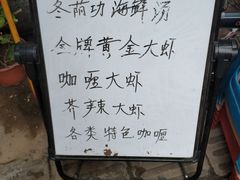 冬荫功海鲜汤
金牌黄金大虾
咖喱大虾
芥辣大虾
各类特色咖喱